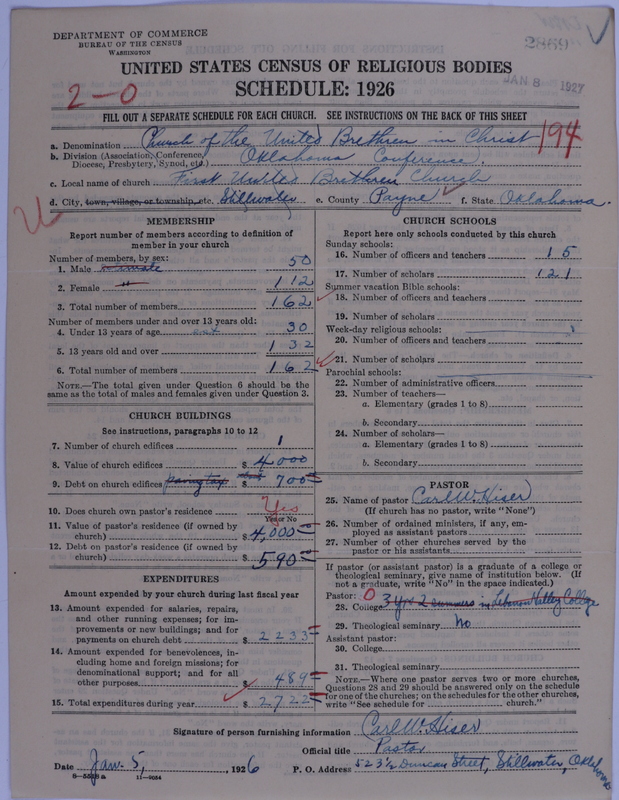 DEPARTMENT OF COMMERCE
BUREAU OF THE CENSUS
WASHINGTON
2869
UNITED STATES CENSUS OF RELIGIOUS BODIES
JAN 8 1927
SCHEDULE: 1926
2-0
FILL OUT A SEPARATE SCHEDULE FOR EACH CHURCH. SEE INSTRUCTIONS ON THE BACK OF THIS SHEET
194
a. Denomination Church of the United Brethren in Christ
b. Division (Association, Conference, Diocese, Presbytery, Synod, etc.) Oklahoma Conference.
c. Local name of church First United Brethren Church
d. City, town, village, or township, etc. Stillwater e. County Payne f. State Oklahoma.
MEMBERSHIP
Report number of members according to definition of
member in your church
Number of members, by sex:
1. Male 50
2. Female " 112
3. Total number of members 162
Number of members under and over 13 years old:
4. Under 13 years of age 30
5. 13 years old and over 132
6. Total number of members 162
NOTE.—The total given under Question 6 should be
same as the total of males and females given under Question 3.
CHURCH BUILDINGS
See instructions, paragraphs 10 to 12
7. Number of church edifices 1
8. Value of church edifices $ 4000
9. Debt on church edifices $ 700
10. Does church own pastor's residence Yes
Yes or No
11. Value of pastor's residence (if owned by
church) $ 4,000
12. Debt on pastor's residence (if owned by
church) $ 590
EXPENDITURES
Amount expended by your church during last fiscal year
13. Amount expended for salaries, repairs,
and other running expenses; for im-
provements or new buildings; and for
payments on church debt $ 2233
14. Amount expended for benevolences, in-
cluding home and foreign missions; for
denominational support; and for all
other purposes $ 489
15. Total expenditures during year $ 2722
CHURCH SCHOOLS
Report here only schools conducted by this church
Sunday schools:
16. Number of officers and teachers 15
17. Number of scholars 121
Summer vacation Bible schools:
18. Number of officers and teachers
19. Number of scholars
Week-day religious schools:
20. Number of officers and teachers
21. Number of scholars
Parochial schools:
22. Number of administrative officers
23. Number of teachers—
a. Elementary (grades 1 to 8)
b. Secondary
24. Number of scholars—
a. Elementary (grades 1 to 8)
b. Secondary
PASTOR
25. Name of pastor Carl W. Hiser
(If church has no pastor, write "None")
26. Number of ordained ministers, if any, em-
ployed as assistant pastors
27. Number of other churches served by the
pastor or his assistants
If pastor (or assistant pastor) is a graduate of a college or
theological seminary, give name of institution below. (If
not a graduate, write "No" in the space indicated.)
Pastor: 0
28. College 3 yrs 2 summers in Lebanon Valley College
29. Theological seminary No
Assistant pastor:
30. College
31. Theological seminary
NOTE.—Where one pastor serves two or more churches,
Questions 28 and 29 should be answered only on the schedule
for one of the churches; on the schedules for the other churches,
write "See schedule for church."
Signature of person furnishing information Carl W. Hiser
Official title Pastor
Date Jan. 5, 1926 P. O. Address 523½ Duncan Street, Stillwater, Oklahoma
8—5518 a 11—9034